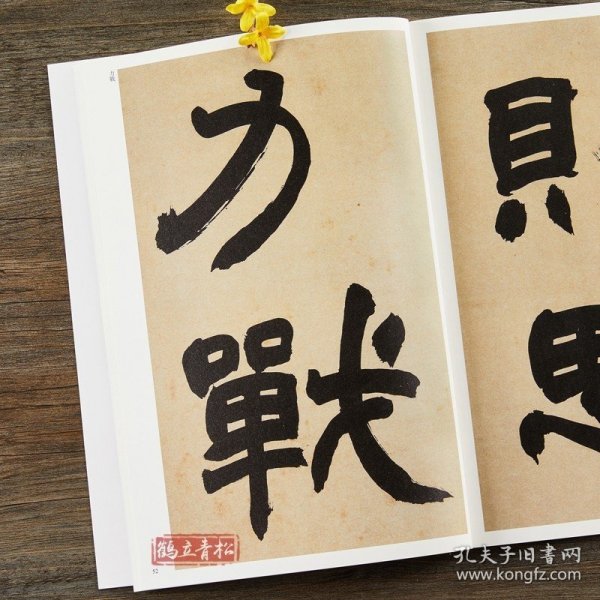 力戰
力
戰
鶴立青松
52
孔夫子旧书网
www.kongfz.com